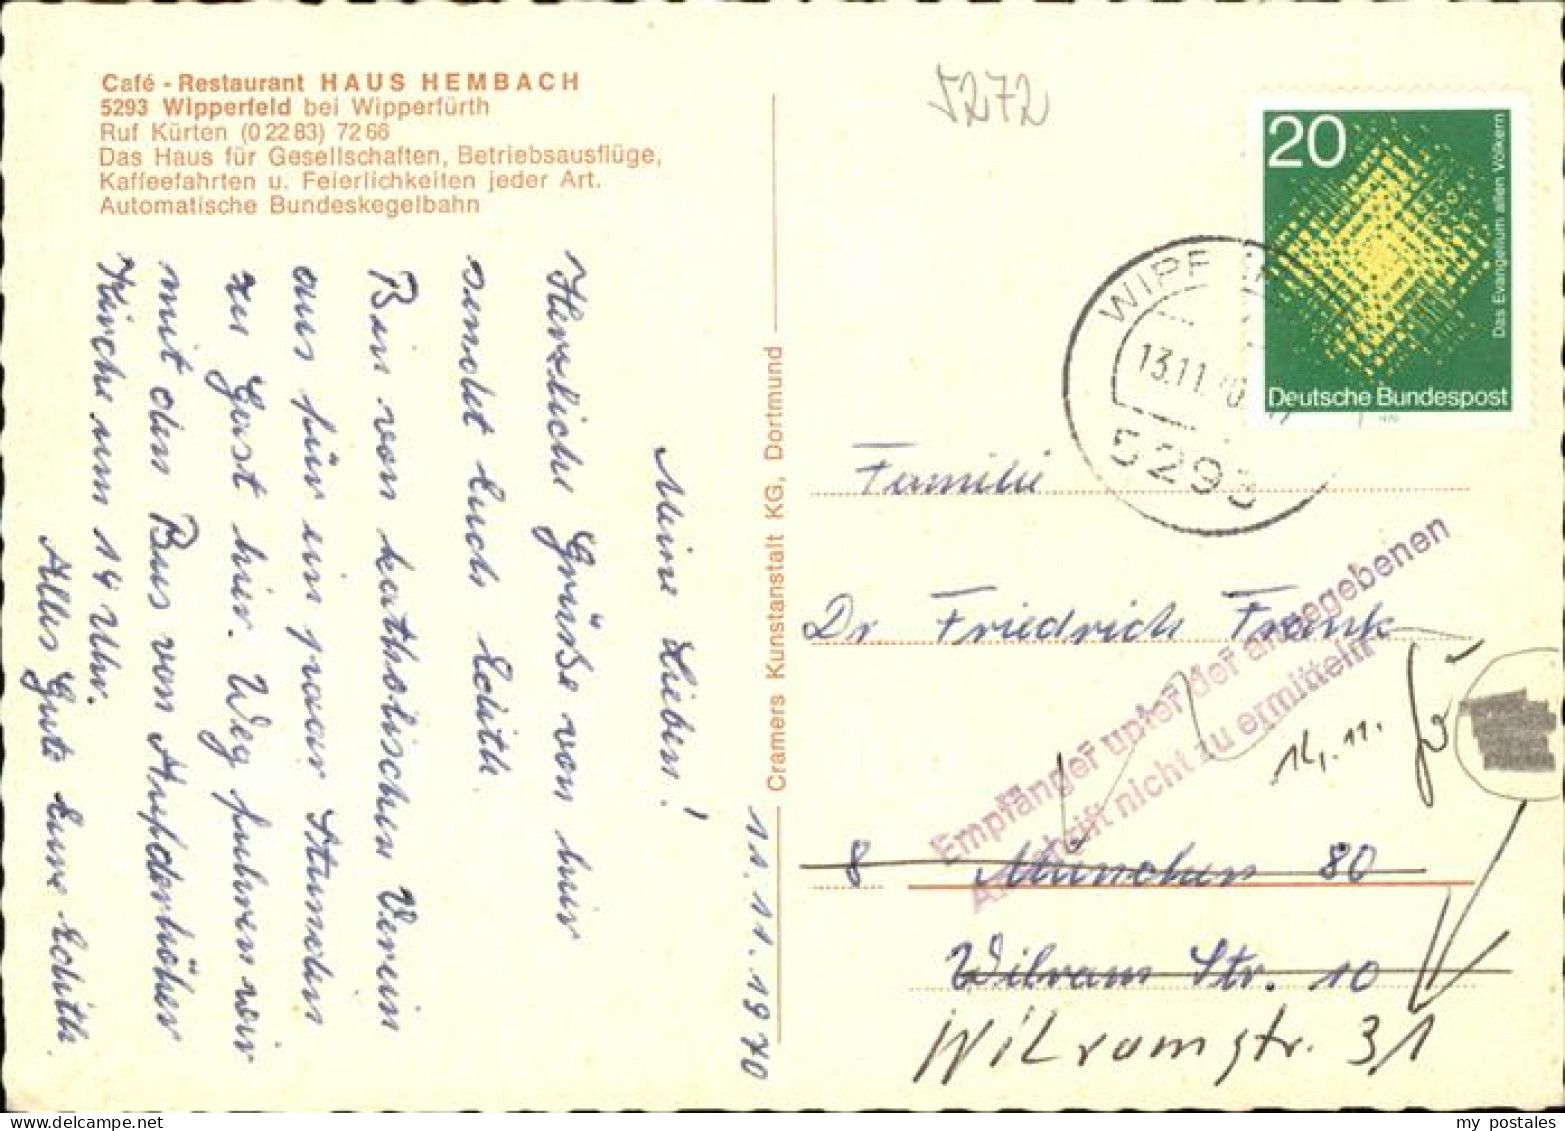 Café - Restaurant HAUS HEMBACH
5293 Wipperfeld bei Wipperfürth
Ruf Kürten (0 22 83) 72 66
Das Haus für Gesellschaften, Betriebsausflüge,
Kaffeefahrten u. Feierlichkeiten jeder Art.
Automatische Bundeskegelbahn
11.11.1970
Meine Lieben!
Herzliche Grüße von hier
sendet Euch Edith.
Bin vom katholischen Verein
aus für ein paar Stunden
zu Gast hier. Weg fuhren wir
mit dem Bus von Aufderhöher
Kirche um 14 Uhr.
Alles Gute Eure Edith.
Cramers Kunstanstalt KG, Dortmund
5272
20
Das Evangelium allen Völkern
Deutsche Bundespost
WIPP
13.11.70
5293
Familie
Dr. Friedrich Frank
Empfänger unter der angegebenen
Anschrift nicht zu ermitteln
14.11.
8 München 80
Wilram Str. 10
Wilramstr. 31
my postales